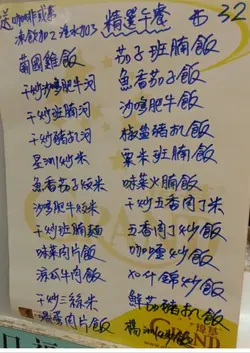 送咖啡或茶
凍飲加2 汽水加3
精選午餐 $32
葡國雞飯
干炒沙嗲肥牛河
干炒班腩河
干炒豬扒河
星洲炒米
魚香茄子炆米
沙嗲肥牛炆米
干炒班腩麵
味菜肉片飯
涼瓜牛肉飯
干炒三絲米
滑蛋肉片飯
茄子班腩飯
魚香茄子飯
沙嗲肥牛飯
椒鹽豬扒飯
粟米班腩飯
味菜火腩飯
干炒五香肉丁米
五香肉丁炒飯
咖喱炒飯
什錦炒飯
鮮茄豬扒飯
楊洲炒飯